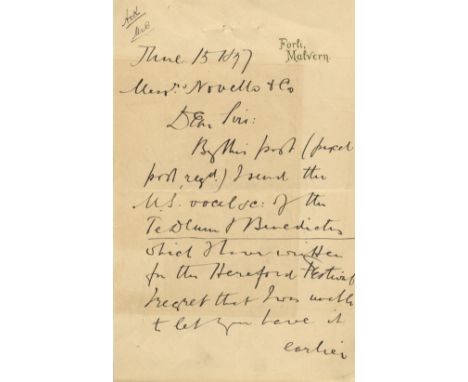 Ack
Forli,
Malvern.
June 15 1897
Messrs. Novello & Co
Dear Sirs:
By this post (parcel
post, regd.) I send the
M.S. vocal sc: of the
Te Deum & Benedictus
which I have written
for the Hereford Festival
I regret that I was unable
to let you have it
earlier